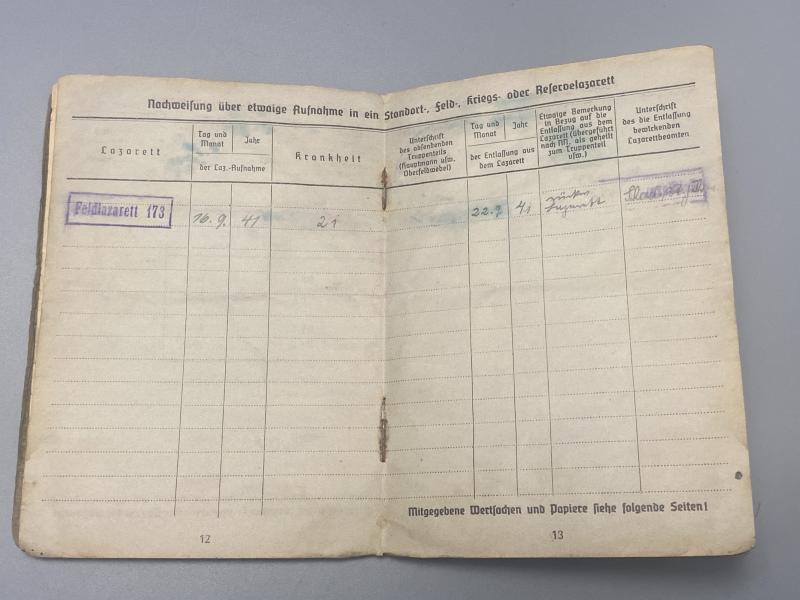 Nachweisung über etwaige Aufnahme in ein Standort-, Feld-, Kriegs- oder Reservelazarett
Lazarett
Tag und Monat
Jahr
der Laz.-Aufnahme
Krankheit
Unterschrift
des absendenden
Truppenteils
(Hauptmann usw.
Oberfeldwebel)
Tag und Monat
Jahr
der Entlassung aus
dem Lazarett
Etwaige Bemerkung
in Bezug auf die
Entlassung aus dem
Lazarett (übergeführt
nach NN, als geheilt
zum Truppenteil
usw.)
Unterschrift
des die Entlassung
bewirkenden
Lazarettbeamten
Feldlazarett 173
16. 9. 41 21
22. 9 41
Mitgegebene Wertsachen und Papiere siehe folgende Seiten!
12
13